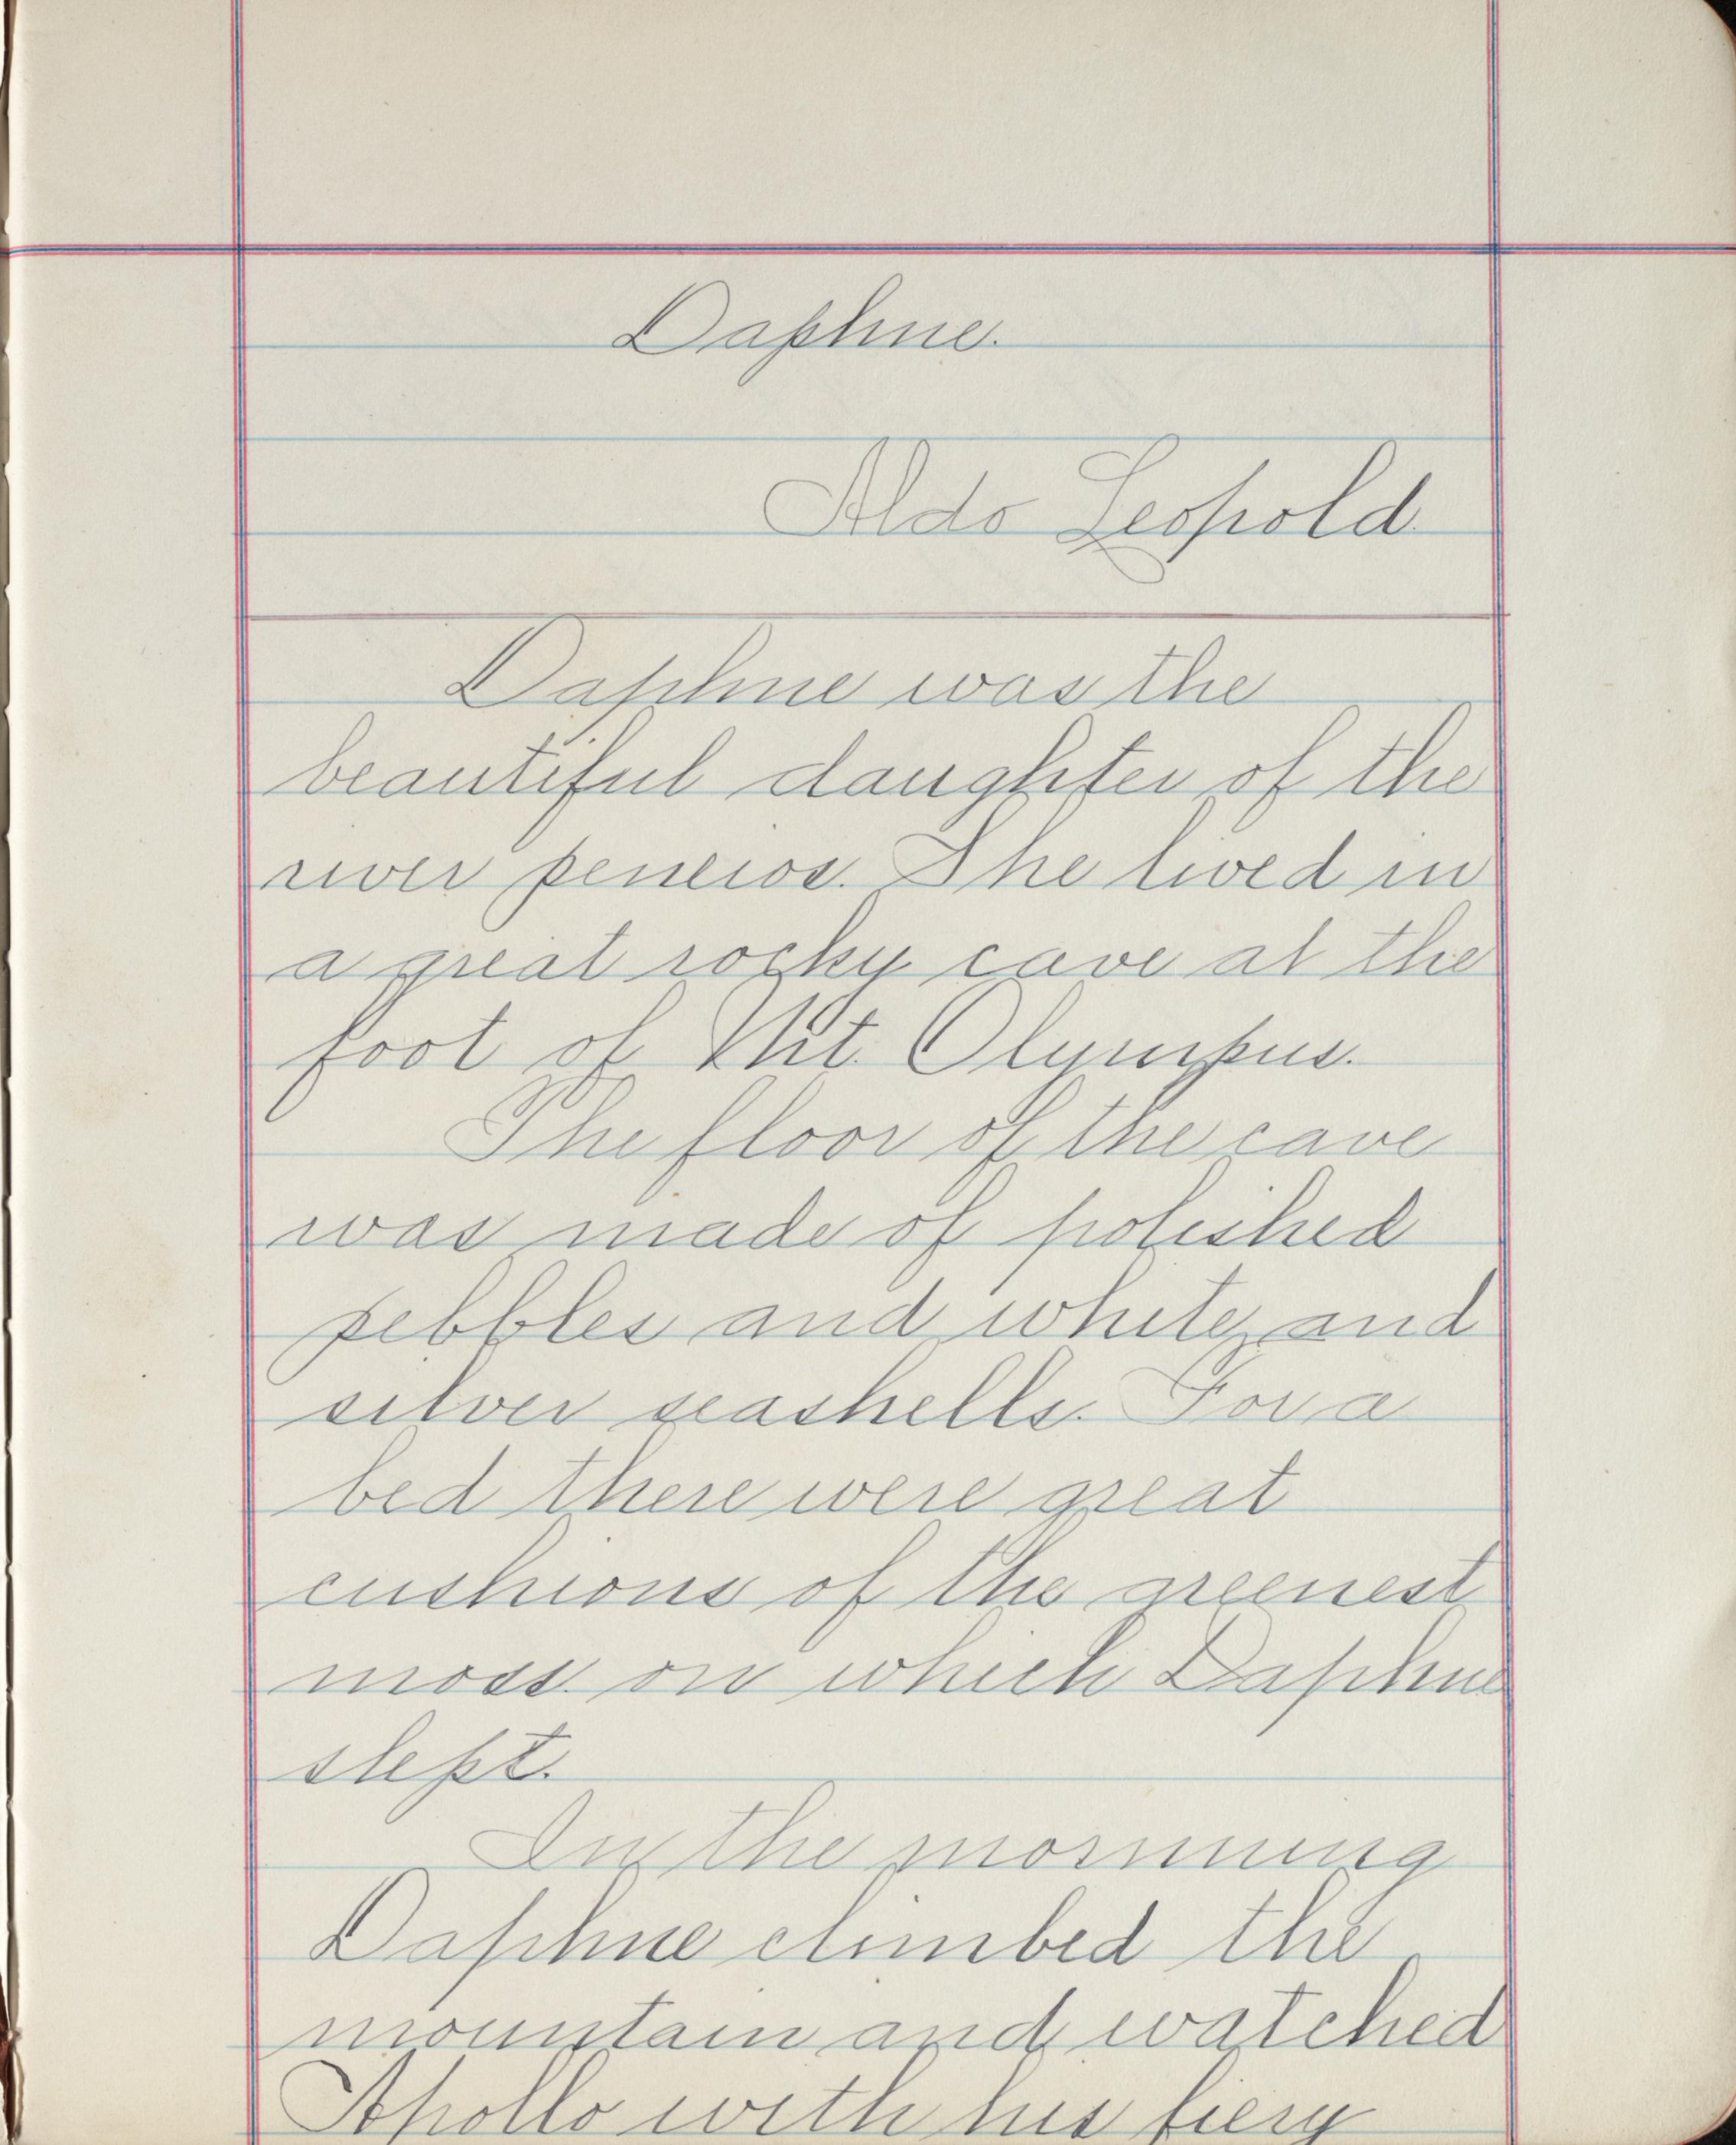 Daphne.
Aldo Leopold.
Daphne was the
beautiful daughter of the
river peneios. She lived in
a great rocky cave at the
foot of Mt. Olympus.
The floor of the cave
was made of polished
pebbles and white and
silver seashells. For a
bed there were great
cushions of the greenest
moss on which Daphne
slept.
In the morning
Daphne climbed the
mountain and watched
Apollo with his fiery